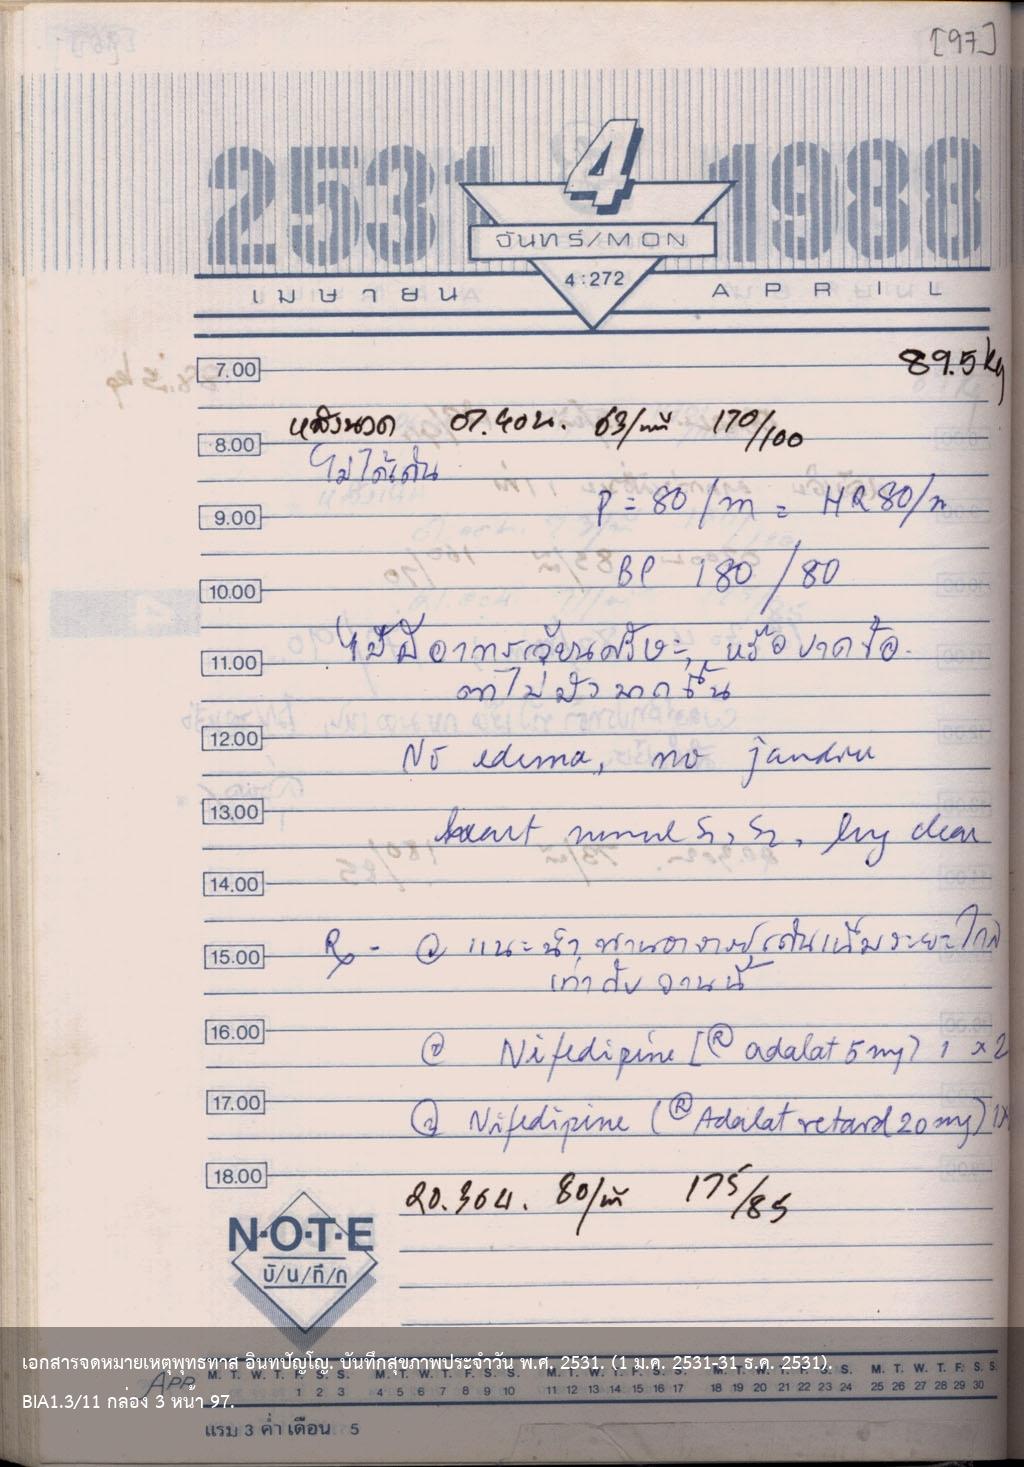 [97]
2531 4 1988
จันทร์/MON
4:272
เมษายน APRIL
7.00 89.5 kg
หลังนวด ๗.๔๐น. 63/นที 170/100
8.00
ไม่ได้เดิน
P = 80/m = HR 80/m
9.00
BP 180/80
10.00
ไม่มีอาการเวียนศรีษะ, หรือ
11.00
ตาไม่มัวมากขึ้น
12.00
No edema, no
13.00
heart normal S1, S2, lung clear
14.00
Rx - แนะนำ ท่านอาจารย์เดินในระยะใกล้
15.00
เท่ากับ
16.00
② Nifedipine [® adalat 5 mg] 1 x 2
17.00
Nifedipine (® Adalat retard 20 mg) 1x
18.00
๒๐.๓๐น. 80/นที 175/85
N·O·T·E
บั/น/ทึ/ก
เอกสารจดหมายเหตุพุทธทาส อินทปัญโญ. บันทึกสุขภาพประจำวัน พ.ศ. 2531. (1 ม.ค. 2531-31 ธ.ค. 2531).
APR M. T. W. T. F. S. S. M. T. W. T. F. S. S. M. T. W. T. F. S. S. M. T. W. T. F. S. S. M. T. W. T. F. S. S.
1 2 3 4 5 6 7 8 9 10 11 12 13 14 15 16 17 18 19 20 21 22 23 24 25 26 27 28 29 30
BIA1.3/11 กล่อง 3 หน้า 97.
แรม 3 ค่ำ เดือน 5